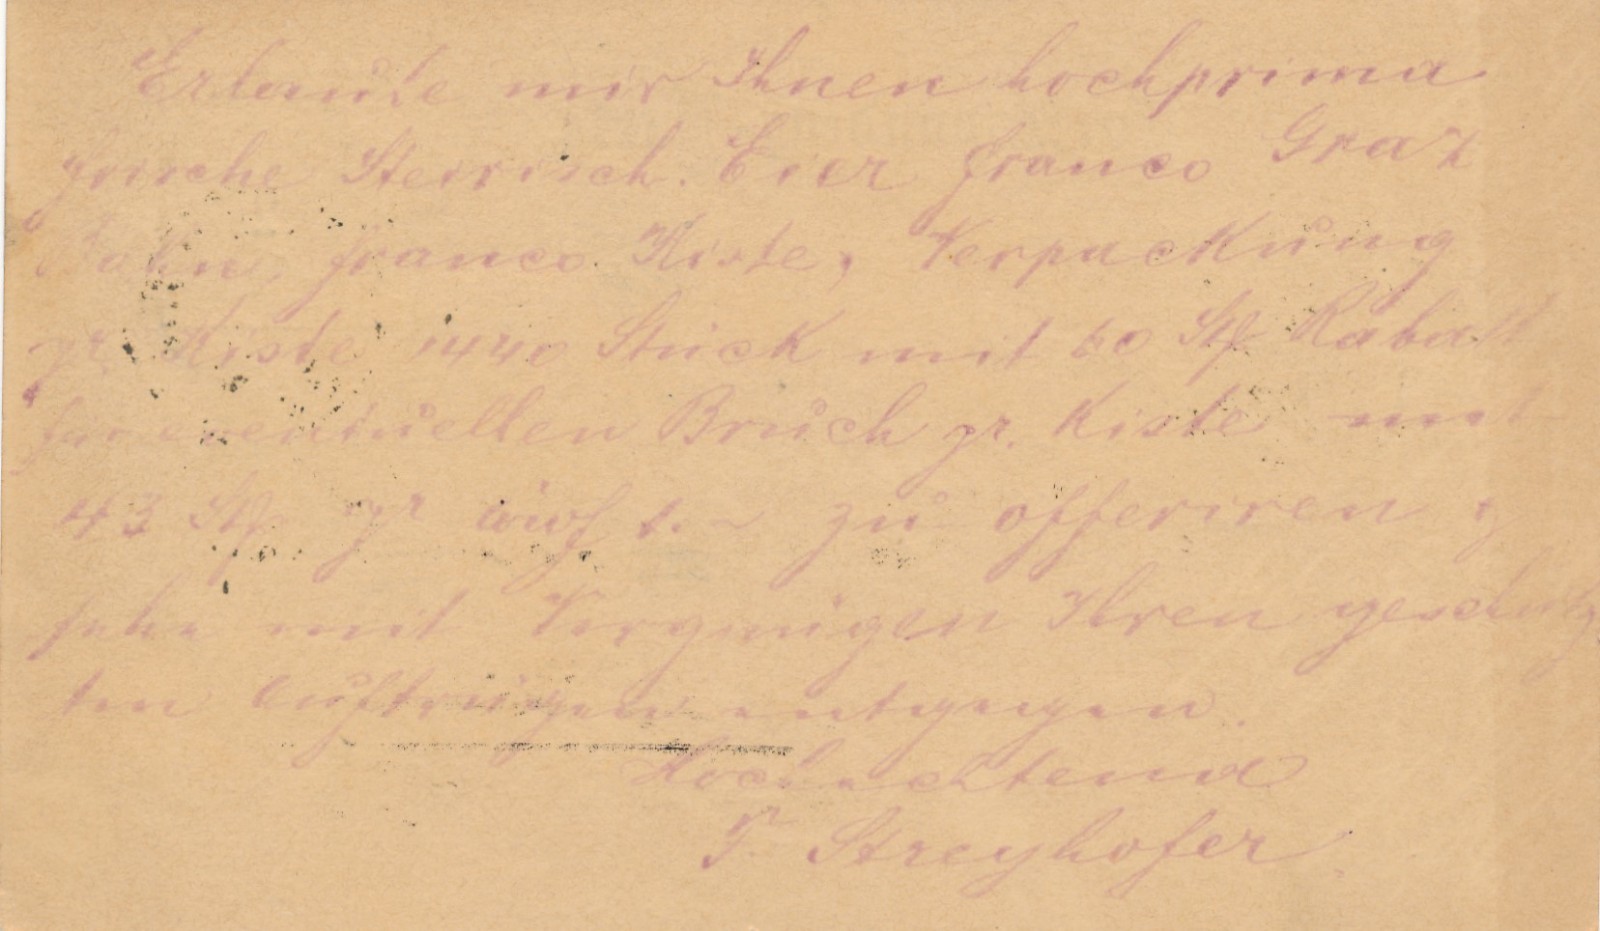 Erlaube mir Ihnen hochprima
frische Steirisch. Eier franco Graz
Bahn, franco Kiste, Verpackung
pr. Kiste 1440 Stück mit 60 Stk Rabatt
für eventuellen Bruch pr. Kiste mit
43 Stk pr zu offeriren &
sehe mit Vergnügen Ihren geschätz
ten Aufträgen entgegen.
Hochachtend
F. Streyhofer